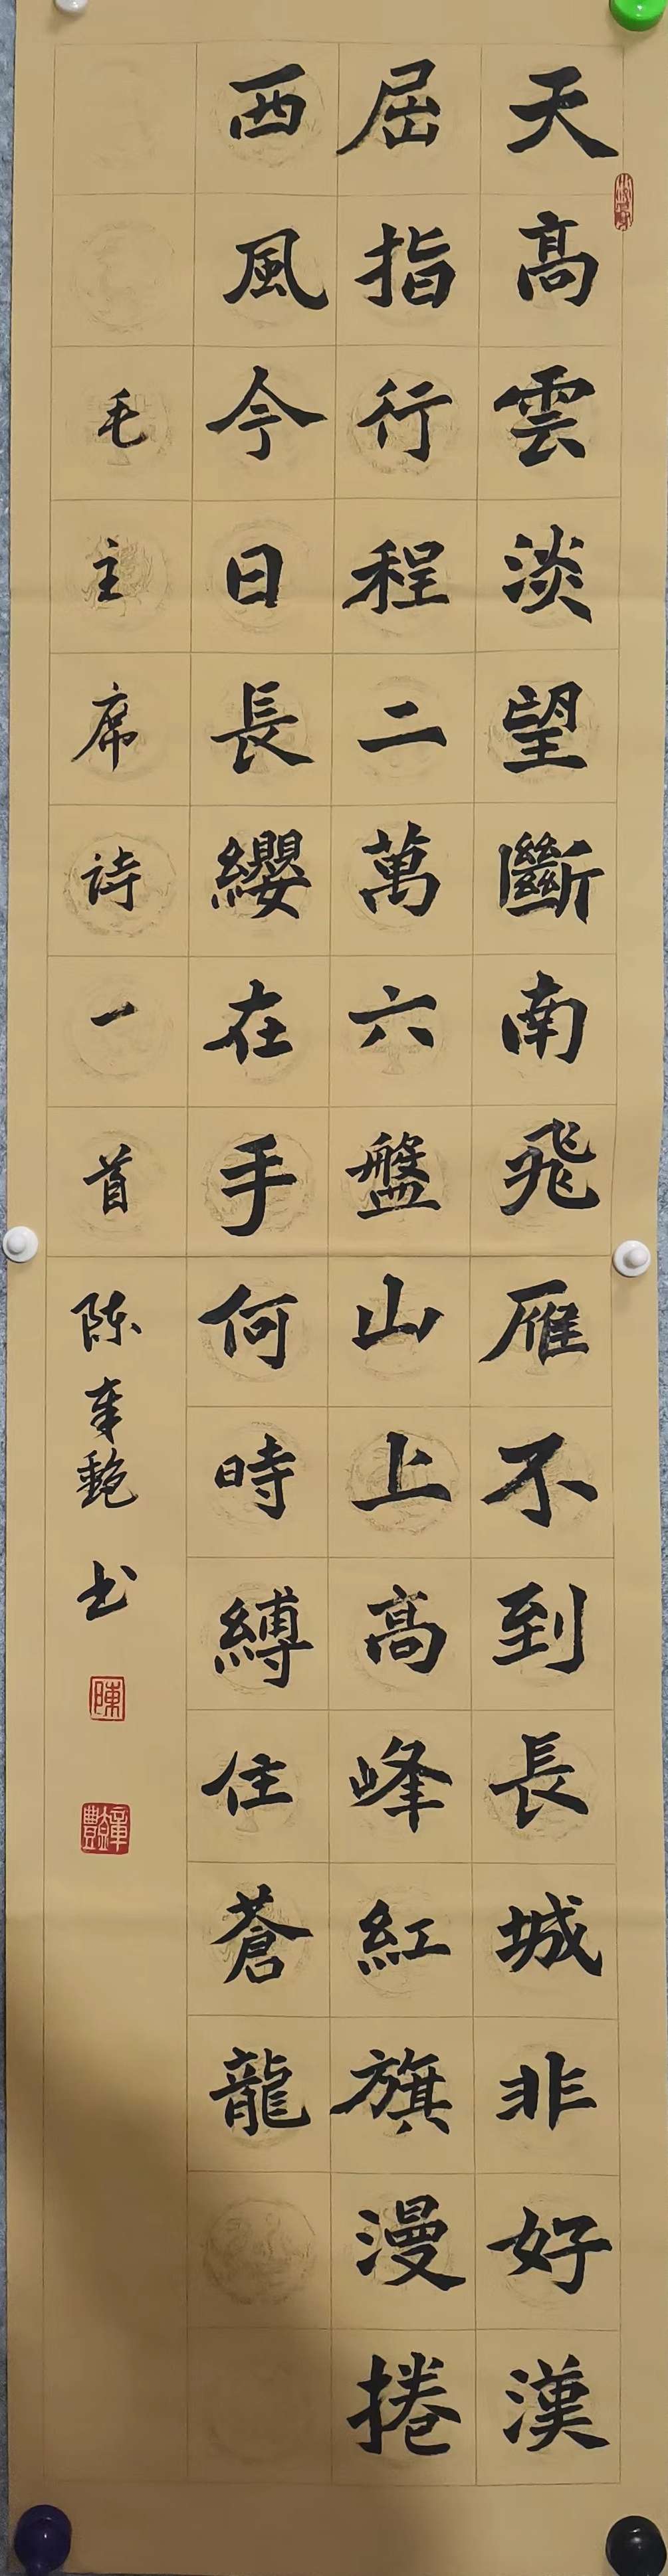 天高雲淡望斷南飛雁不到長城非好漢
屈指行程二萬六盤山上高峰紅旗漫捲
西風今日長纓在手何時縛住蒼龍
毛主席诗一首 陈 书
陳